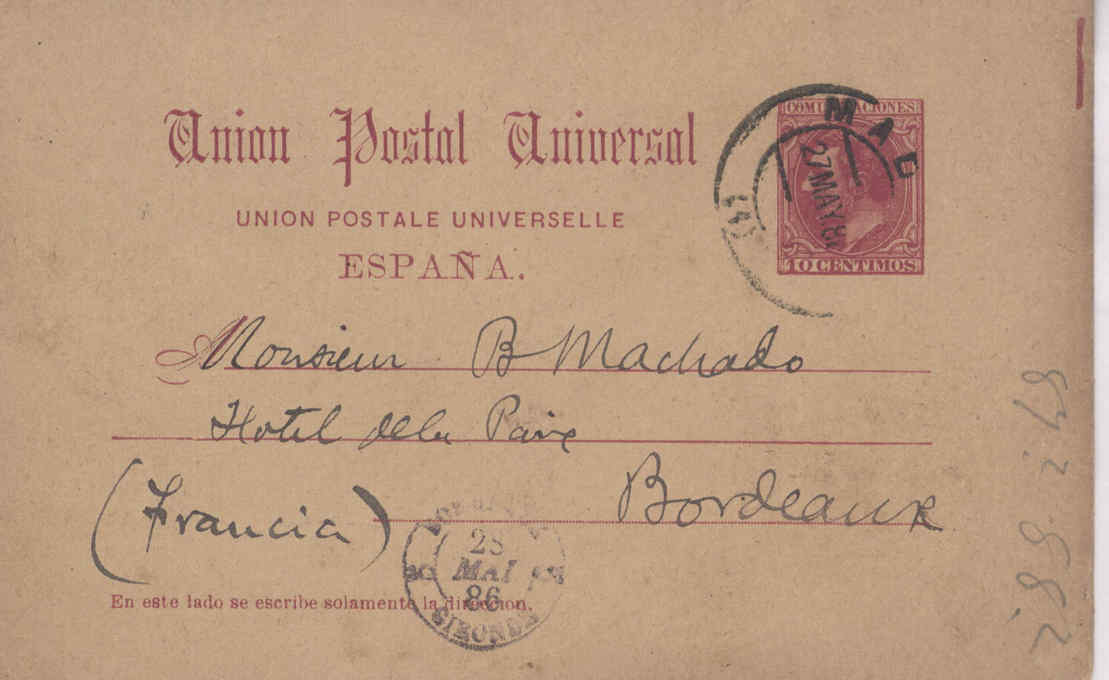 Union Postal Universal
UNION POSTALE UNIVERSELLE
ESPAÑA.
COMUNICACIONES
MAD
27 MAY 8
10 CENTIMOS
Monsieur B Machado
Hotel de la Paix
Bordeaux
(Francia)
BORDEAUX
28
MAI
86
GIRONDE
En este lado se escribe solamente la direccion.